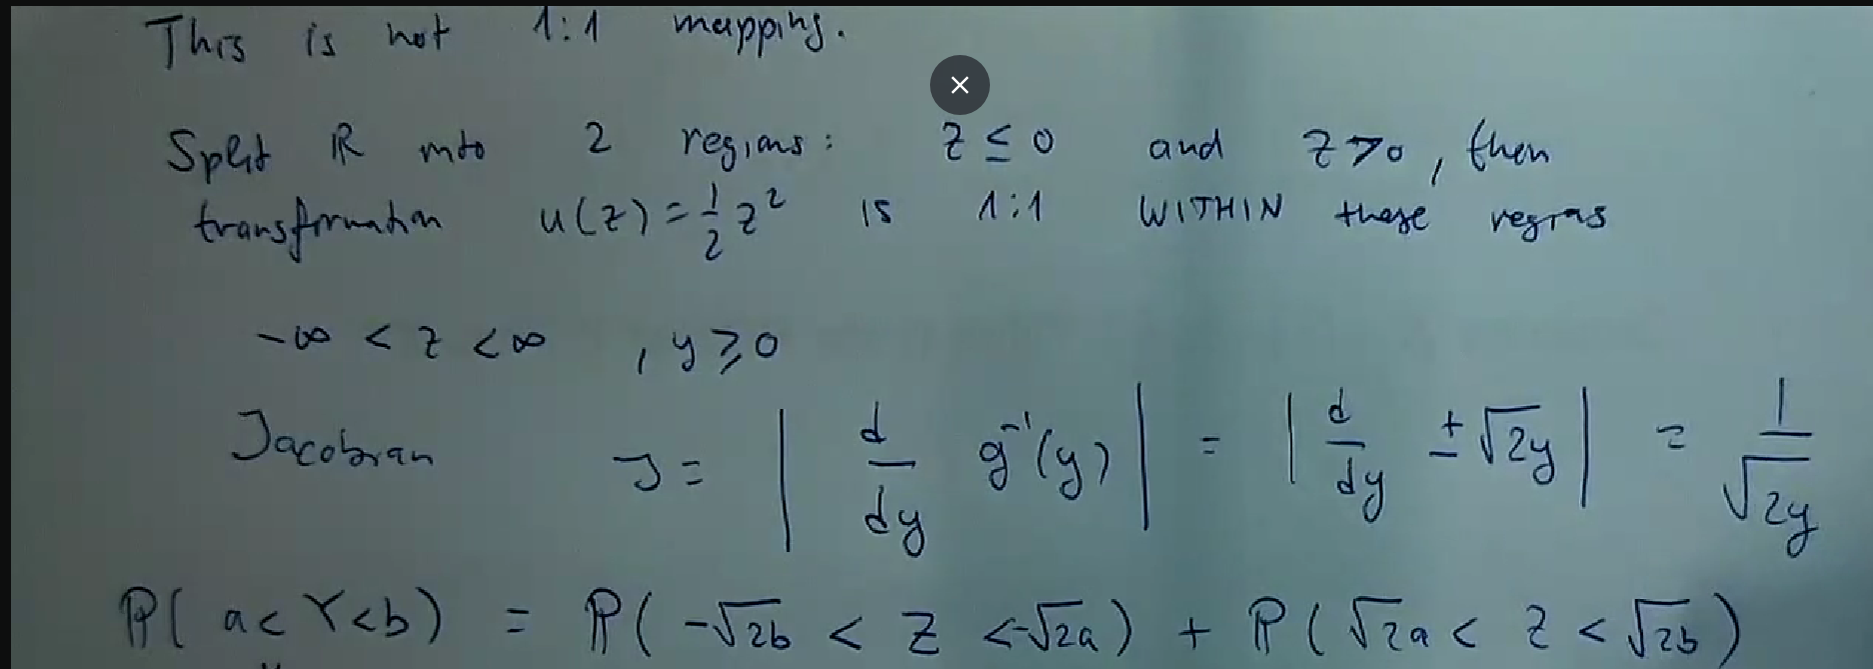 This is not 1:1 mapping.
Split ℝ into 2 regions: z ≤ 0 and z > 0, then
transformation u(z) = 1/2 z² is 1:1 WITHIN these regions
-∞ < z < ∞ , y ≥ 0
Jacobian J = | d/dy g⁻¹(y) | = | d/dy ±√2y | = 1/√2y
ℙ( a < Y < b ) = ℙ( -√2b < Z < -√2a ) + ℙ( √2a < Z < √2b )